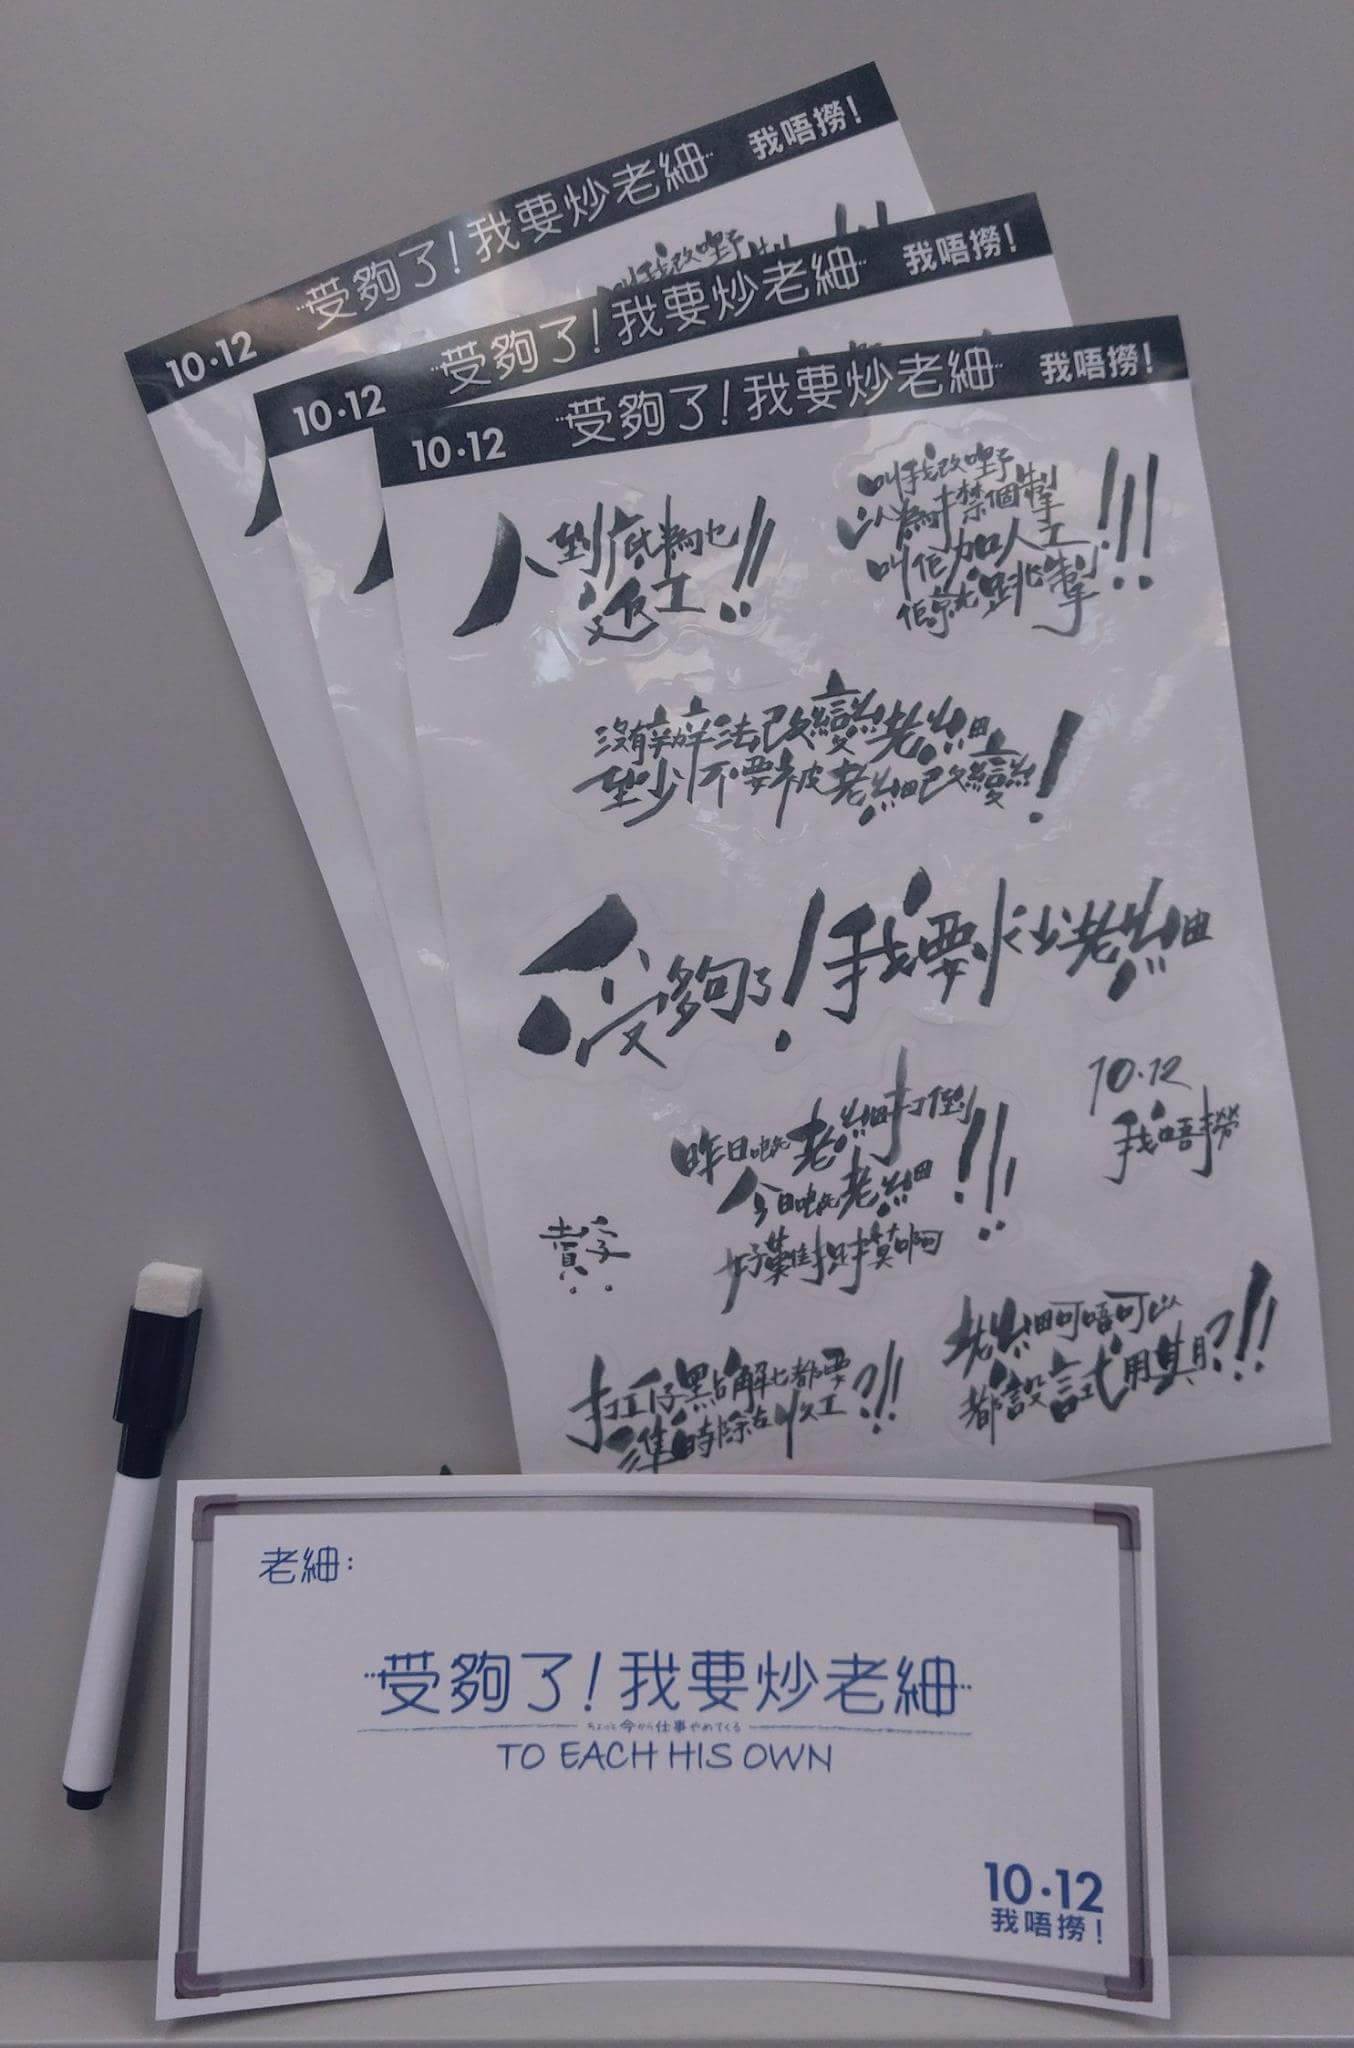 10·12 受夠了!我要炒老細 我唔撈!
10·12 受夠了!我要炒老細 我唔撈!
10·12 受夠了!我要炒老細 我唔撈!
人到底為乜
返工!!
叫我改嘢
以為扌禁個掣
叫佢加人工
佢就跳掣!!!
沒有辦法改變老細
至少不要被老細改變!
受夠了!我要炒老細
昨日啱先老細打倒
今日啱老細!!!
好難捉摸啊
10.12
我唔撈
打工仔點解乜都要
準時除左收工?!!
老細可唔可以
都設試用期?!!
老細:
受夠了!我要炒老細
ちょっと今から仕事やめてくる
TO EACH HIS OWN
10·12
我唔撈!